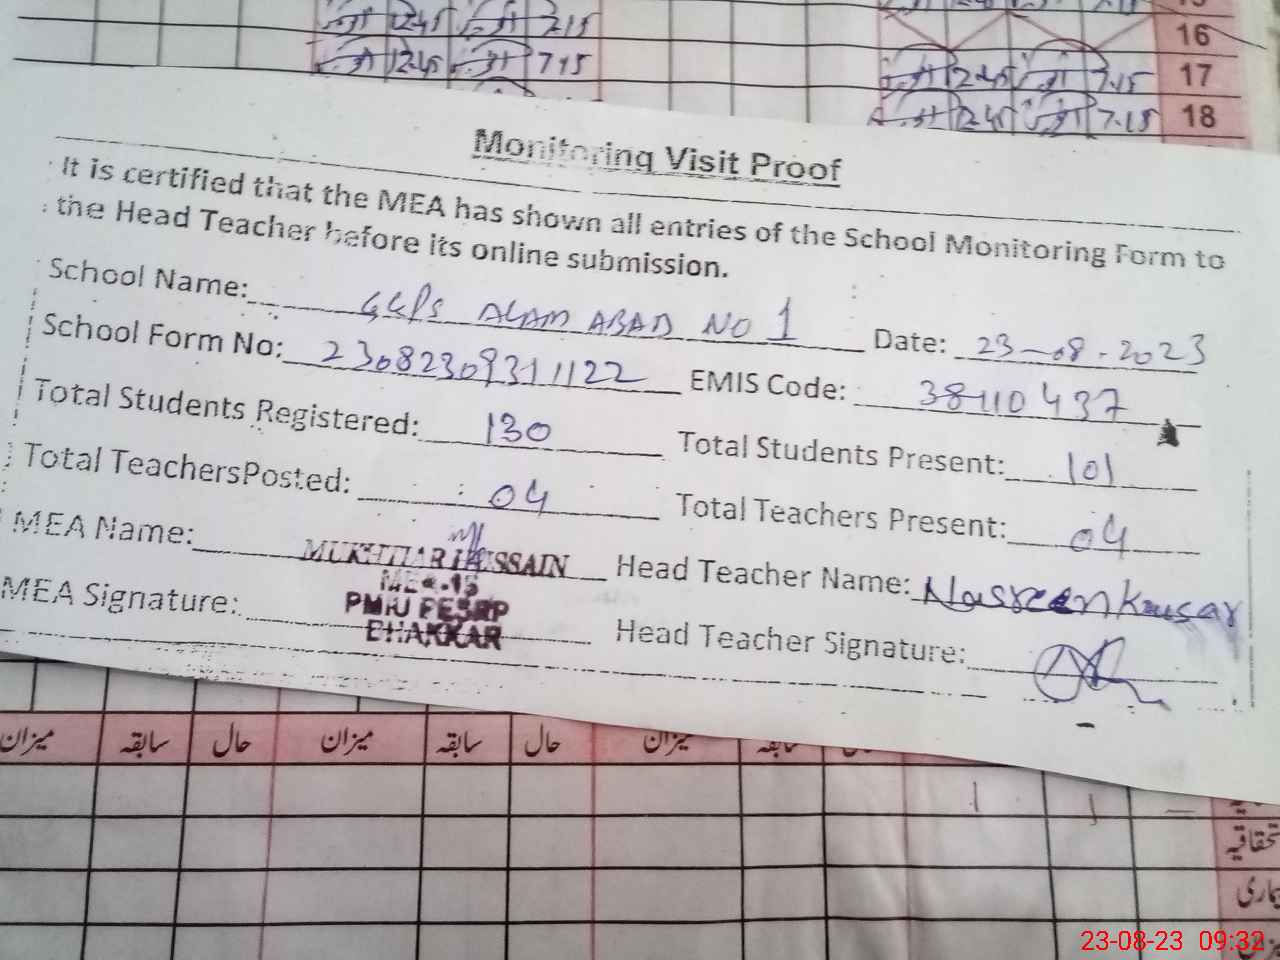 12.45 7.15
16
12.45 7.15 12.45 7.15 17
12.45 7.15 18
Monitoring Visit Proof
It is certified that the MEA has shown all entries of the School Monitoring Form to
the Head Teacher before its online submission.
School Name: GGPS ALAM ABAD NO 1 Date: 23-08-2023
School Form No: 23082309311122 EMIS Code: 38110437
Total Students Registered: 130 Total Students Present: 101
Total TeachersPosted: 04 Total Teachers Present: 04
MEA Name: MUKHTIAR HUSSAIN Head Teacher Name: Nasreen Kausar
MEA-15
PMIU PESRP
MEA Signature: BHAKKAR Head Teacher Signature:
میزان سابقہ حال میزان سابقہ حال میزان سابقہ
تحقاقیہ
یماری
23-08-23 09:32